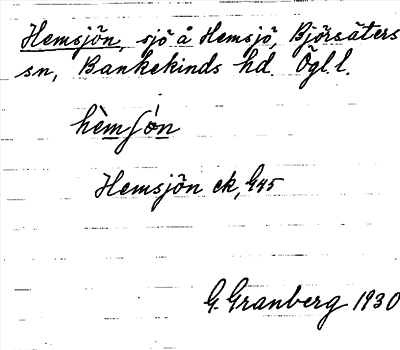 Hemsjön, sjö å Hemsjö, Björsäters
sn, Bankekinds hd. Ögl.l.
hèmʃón
Hemsjön ek, G45
G. Granberg 1930